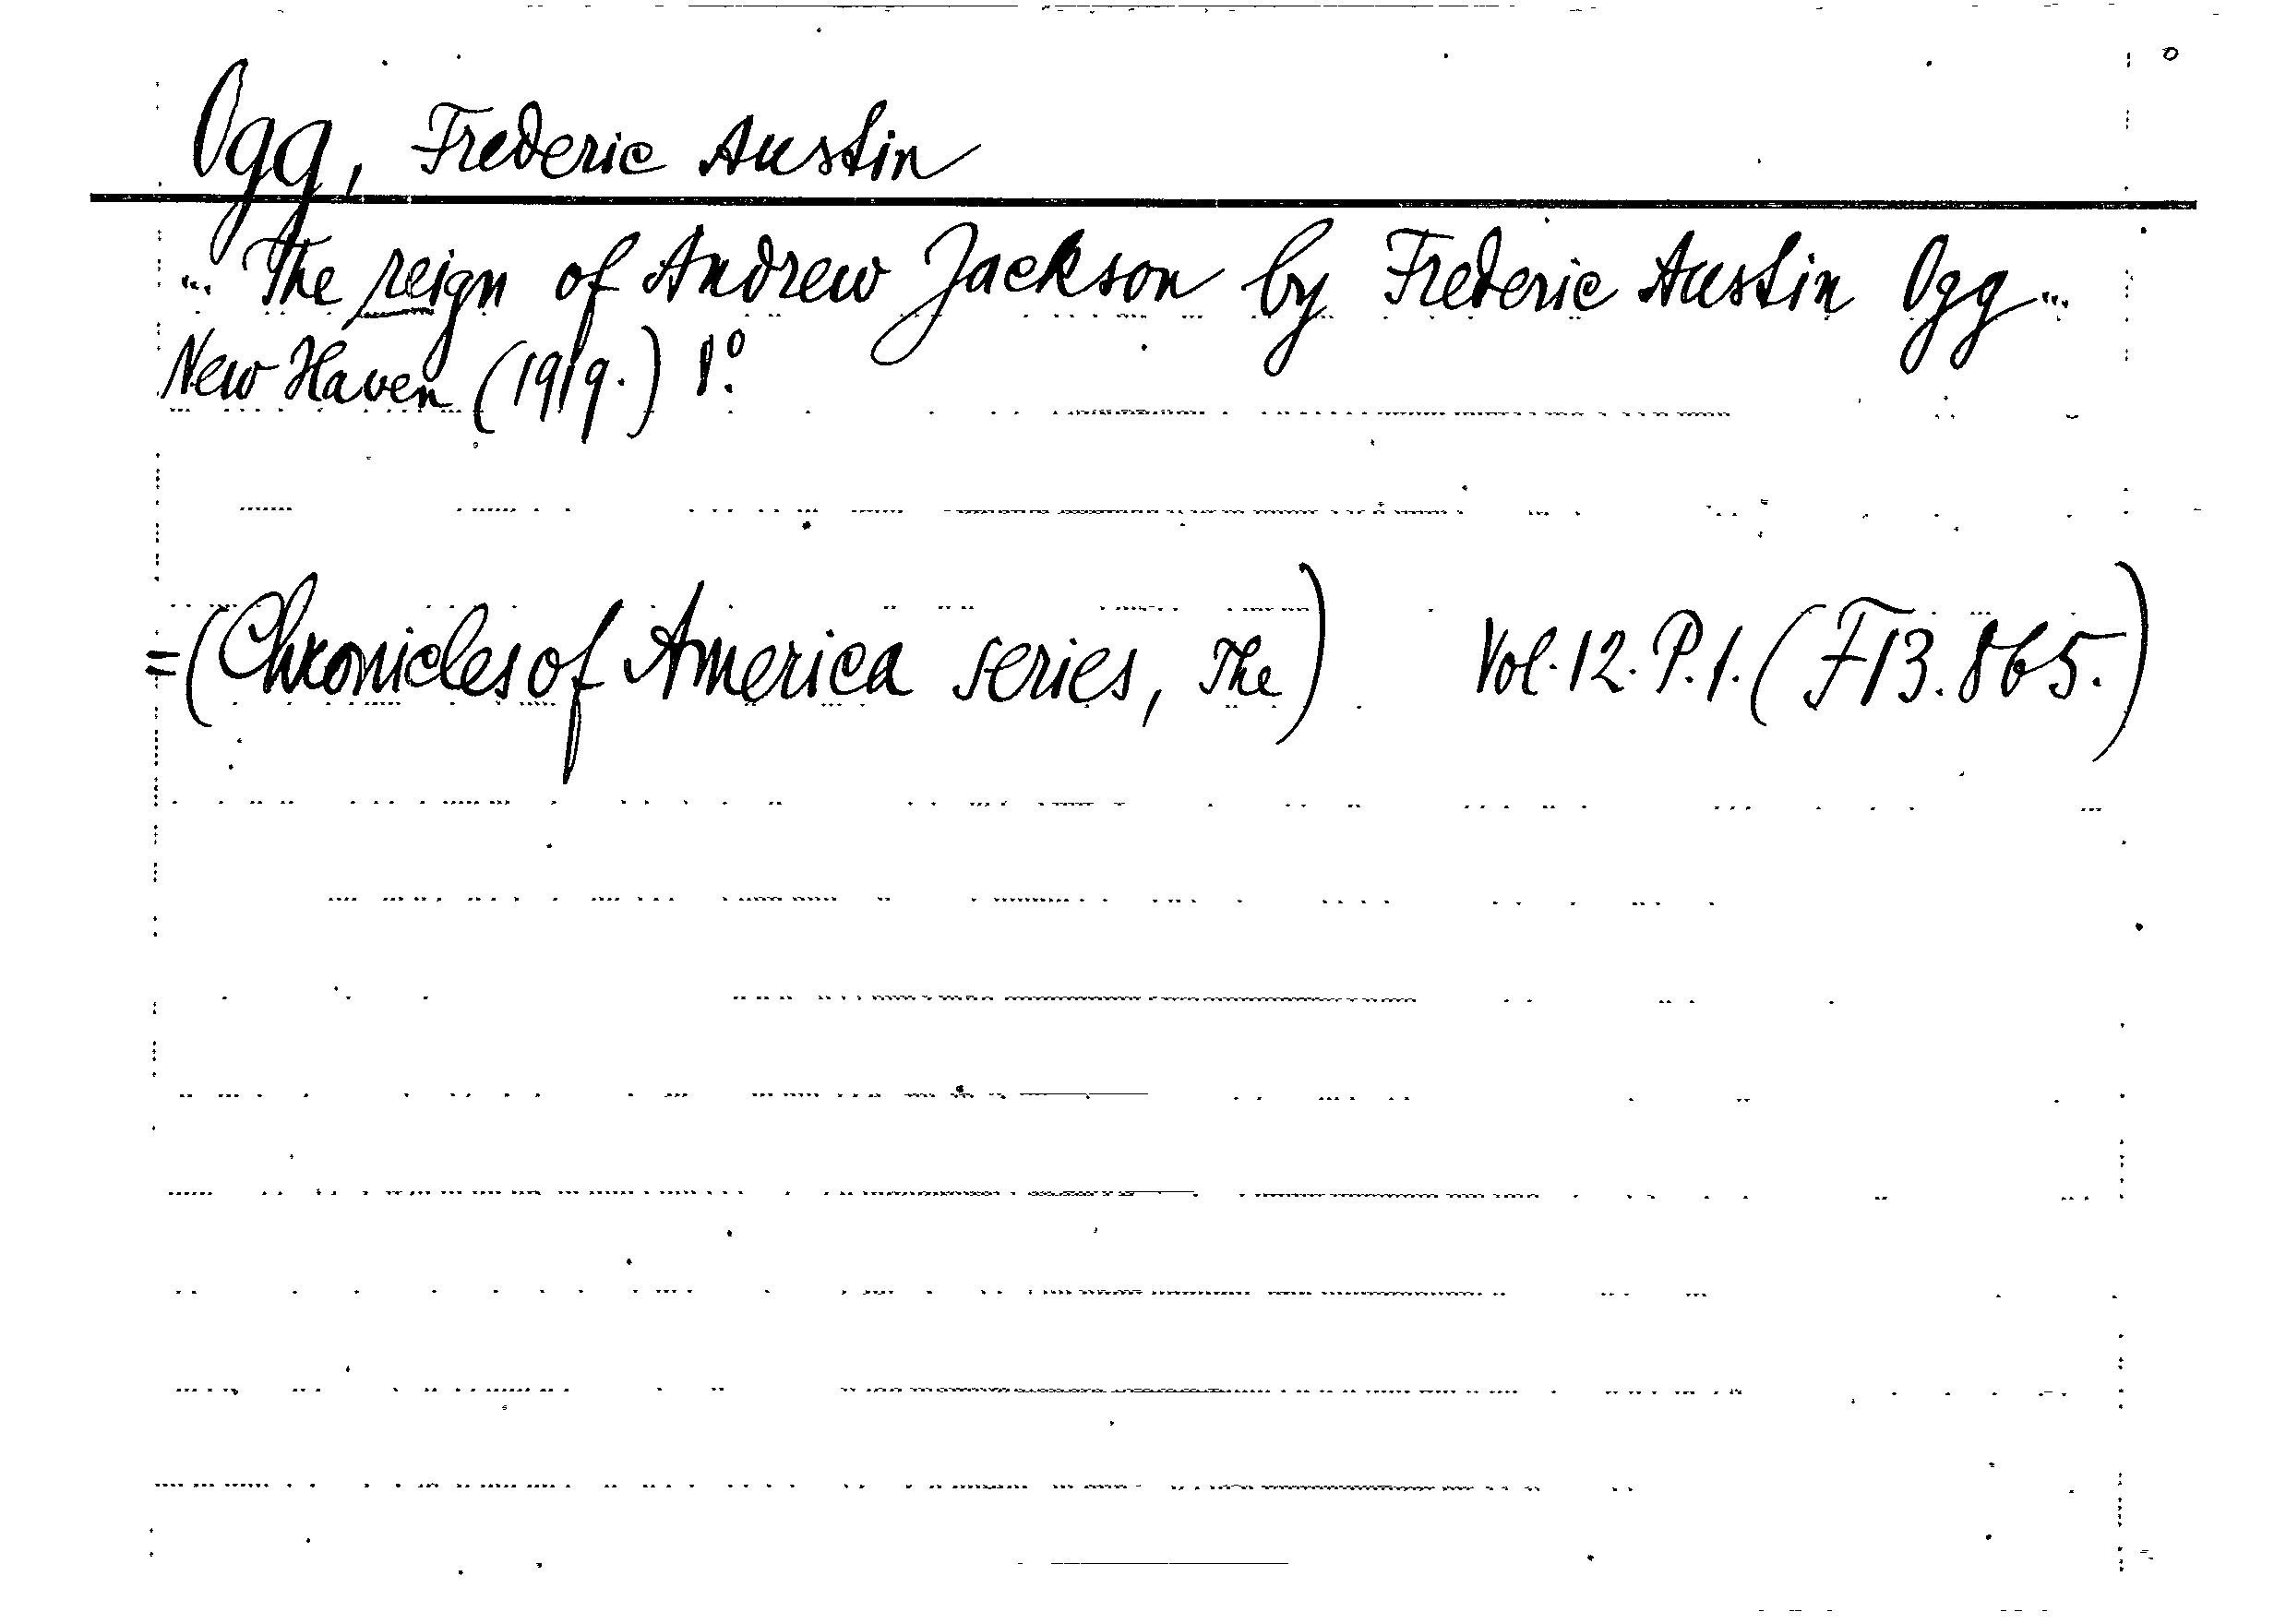 Ogg, Frederic Austin
... The reign of Andrew Jackson by Frederic Austin Ogg ...
New Haven (1919.) 8°.
=(Chronicles of America series, The) Vol. 12. P. 1. (F13.865.)